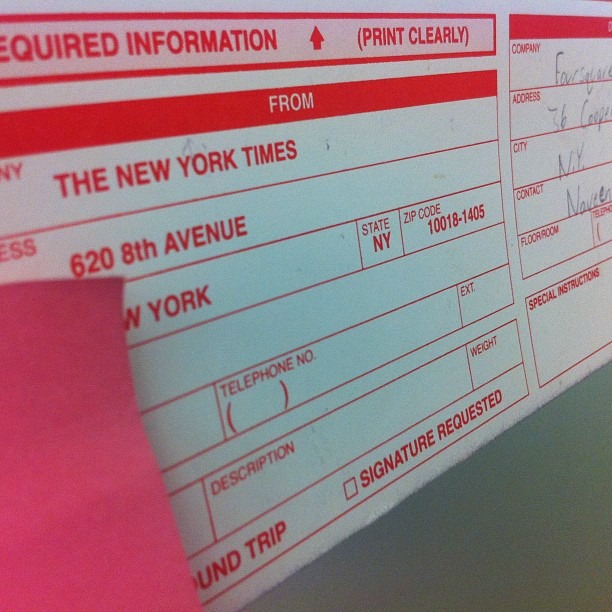 EQUIRED INFORMATION (PRINT CLEARLY)
FROM
NY THE NEW YORK TIMES
ESS 620 8th AVENUE
STATE NY ZIP CODE 10018-1405
W YORK
TELEPHONE NO. ( ) EXT.
DESCRIPTION WEIGHT
UND TRIP SIGNATURE REQUESTED
COMPANY Foursquare
ADDRESS 36 Coope
CITY N.Y.
CONTACT Naveen
FLOOR/ROOM TELEPHONE (
SPECIAL INSTRUCTIONS